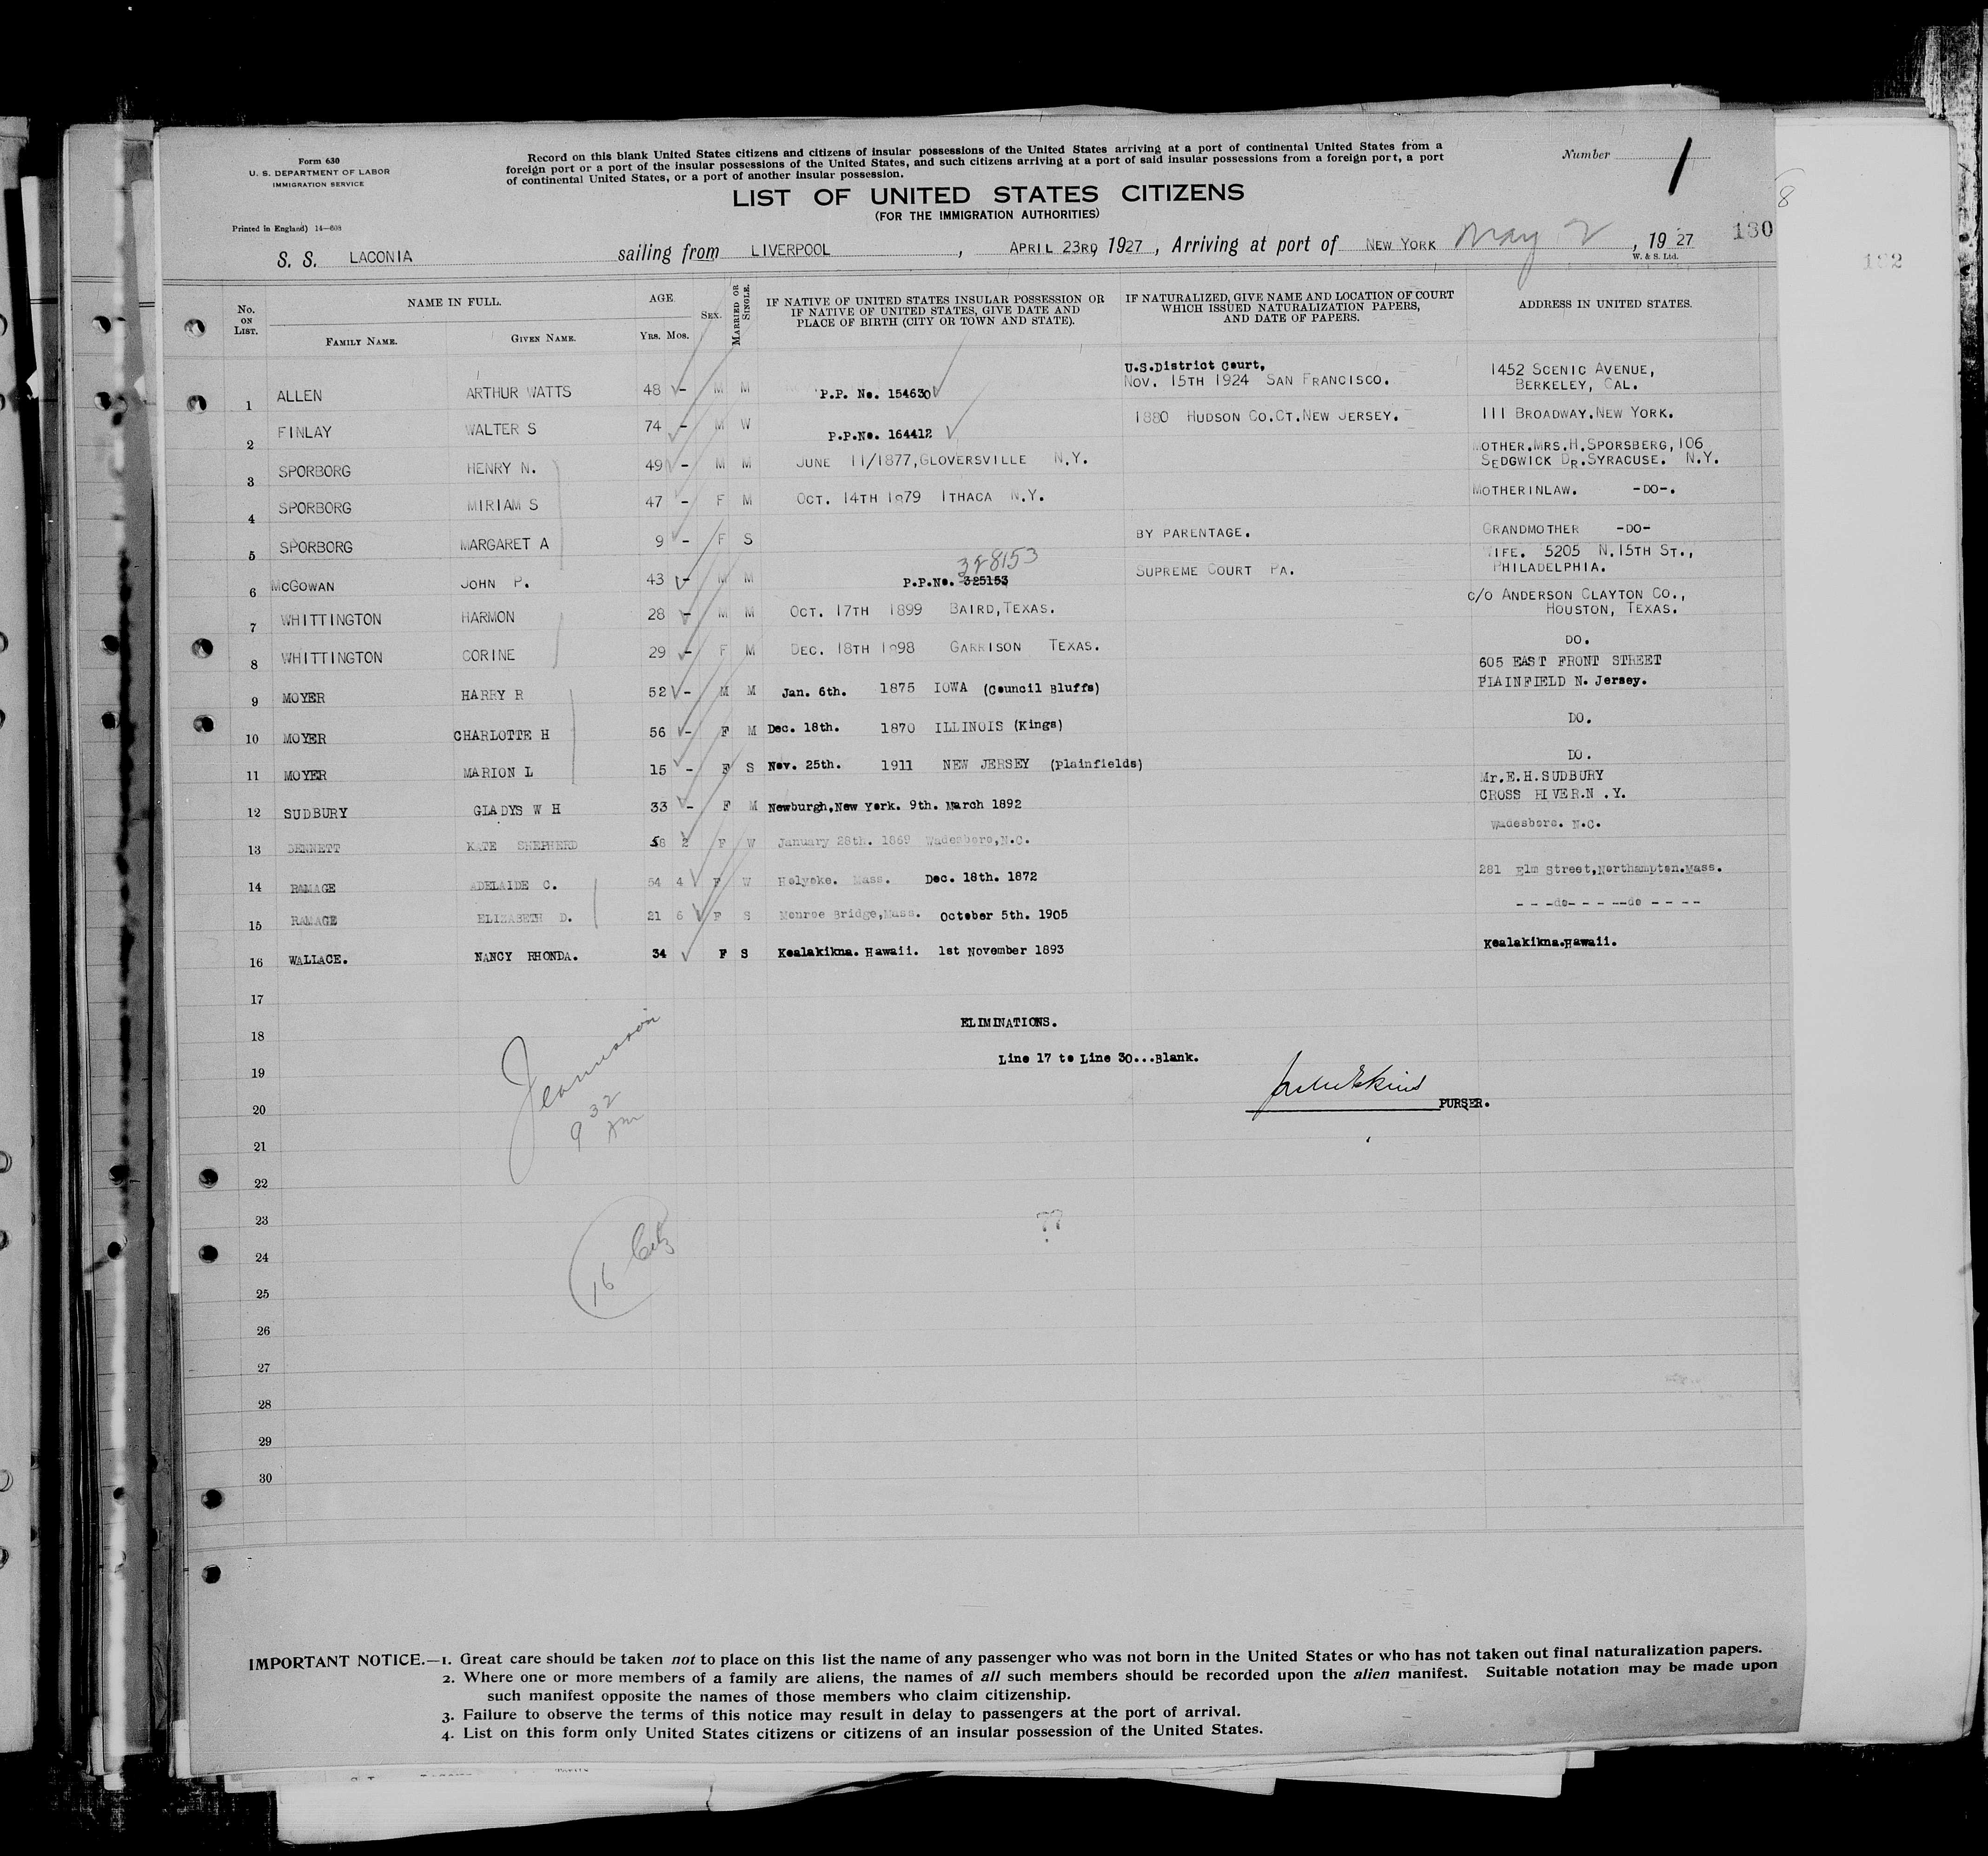 Form 630
U. S. DEPARTMENT OF LABOR
IMMIGRATION SERVICE
Printed in England) 14—608
Record on this blank United States citizens and citizens of insular possessions of the United States arriving at a port of continental United States from a
foreign port or a port of the insular possessions of the United States, and such citizens arriving at a port of said insular possessions from a foreign port, a port
of continental United States, or a port of another insular possession.
LIST OF UNITED STATES CITIZENS
(FOR THE IMMIGRATION AUTHORITIES)
Number 1
8
S. S. LACONIA sailing from LIVERPOOL, APRIL 23RD, 1927, Arriving at port of NEW YORK May 2, 1927 130
W. & S. Ltd.
182
No. ON LIST. NAME IN FULL. FAMILY NAME. GIVEN NAME. AGE. YRS. MOS. SEX. MARRIED OR SINGLE. IF NATIVE OF UNITED STATES INSULAR POSSESSION OR IF NATIVE OF UNITED STATES, GIVE DATE AND PLACE OF BIRTH (CITY OR TOWN AND STATE). IF NATURALIZED, GIVE NAME AND LOCATION OF COURT WHICH ISSUED NATURALIZATION PAPERS, AND DATE OF PAPERS. ADDRESS IN UNITED STATES.
1 ALLEN ARTHUR WATTS 48 - M M P.P. No. 154630 U.S.District Court, NOV. 15TH 1924 SAN FRANCISCO. 1452 SCENIC AVENUE, BERKELEY, CAL.
2 FINLAY WALTER S 74 - M W P.P.No. 164412 1880 HUDSON CO.CT.NEW JERSEY. 111 BROADWAY.NEW YORK.
3 SPORBORG HENRY N. 49 - M M JUNE 11/1877,GLOVERSVILLE N.Y. MOTHER.MRS.H.SPORSBERG,106 SEDGWICK DR.SYRACUSE. N.Y.
4 SPORBORG MIRIAM S 47 - F M OCT. 14TH 1879 ITHACA N.Y. MOTHERINLAW. -DO-.
5 SPORBORG MARGARET A 9 - F S BY PARENTAGE. GRANDMOTHER -DO-
6 MCGOWAN JOHN P. 43 - M M 328153 P.P.No. 325153 SUPREME COURT PA. WIFE. 5205 N.15TH ST., PHILADELPHIA.
7 WHITTINGTON HARMON 28 - M M OCT. 17TH 1899 BAIRD,TEXAS. C/O ANDERSON CLAYTON CO., HOUSTON, TEXAS.
8 WHITTINGTON CORINE 29 - F M DEC. 18TH 1898 GARRISON TEXAS. DO.
9 MOYER HARRY R 52 - M M Jan. 6th. 1875 IOWA (Council Bluffs) 605 EAST FRONT STREET PLAINFIELD N. Jersey.
10 MOYER CHARLOTTE H 56 - F M Dec. 18th. 1870 ILLINOIS (Kings) DO.
11 MOYER MARION L 15 - F S Nov. 25th. 1911 NEW JERSEY (Plainfields) DO.
12 SUDBURY GLADYS W H 33 - F M Newburgh,New York. 9th. March 1892 Mr.E.H.SUDBURY CROSS RIVER.N .Y.
13 BENNETT KATE SHEPHERD 58 2 F W January 28th. 1869 Wadesboro,N.C. Wadesboro. N.C.
14 RAMAGE ADELAIDE C. 54 4 F W Holyoke. Mass. Dec. 18th. 1872 281 Elm Street,Northampton.Mass.
15 RAMAGE ELIZABETH D. 21 6 F S Monroe Bridge,Mass. October 5th. 1905 - - -do- - - --do - - - -
16 WALLACE. NANCY RHONDA. 34 F S Kealakikna. Hawaii. 1st November 1893 Kealakikna.Hawaii.
17
18 ELIMINATIONS.
19 Line 17 to Line 30...Blank.
20 PURSER.
932
21
22
23 ??
24
16 Citz
25
26
27
28
29
30
IMPORTANT NOTICE.—1. Great care should be taken not to place on this list the name of any passenger who was not born in the United States or who has not taken out final naturalization papers.
2. Where one or more members of a family are aliens, the names of all such members should be recorded upon the alien manifest. Suitable notation may be made upon
such manifest opposite the names of those members who claim citizenship.
3. Failure to observe the terms of this notice may result in delay to passengers at the port of arrival.
4. List on this form only United States citizens or citizens of an insular possession of the United States.